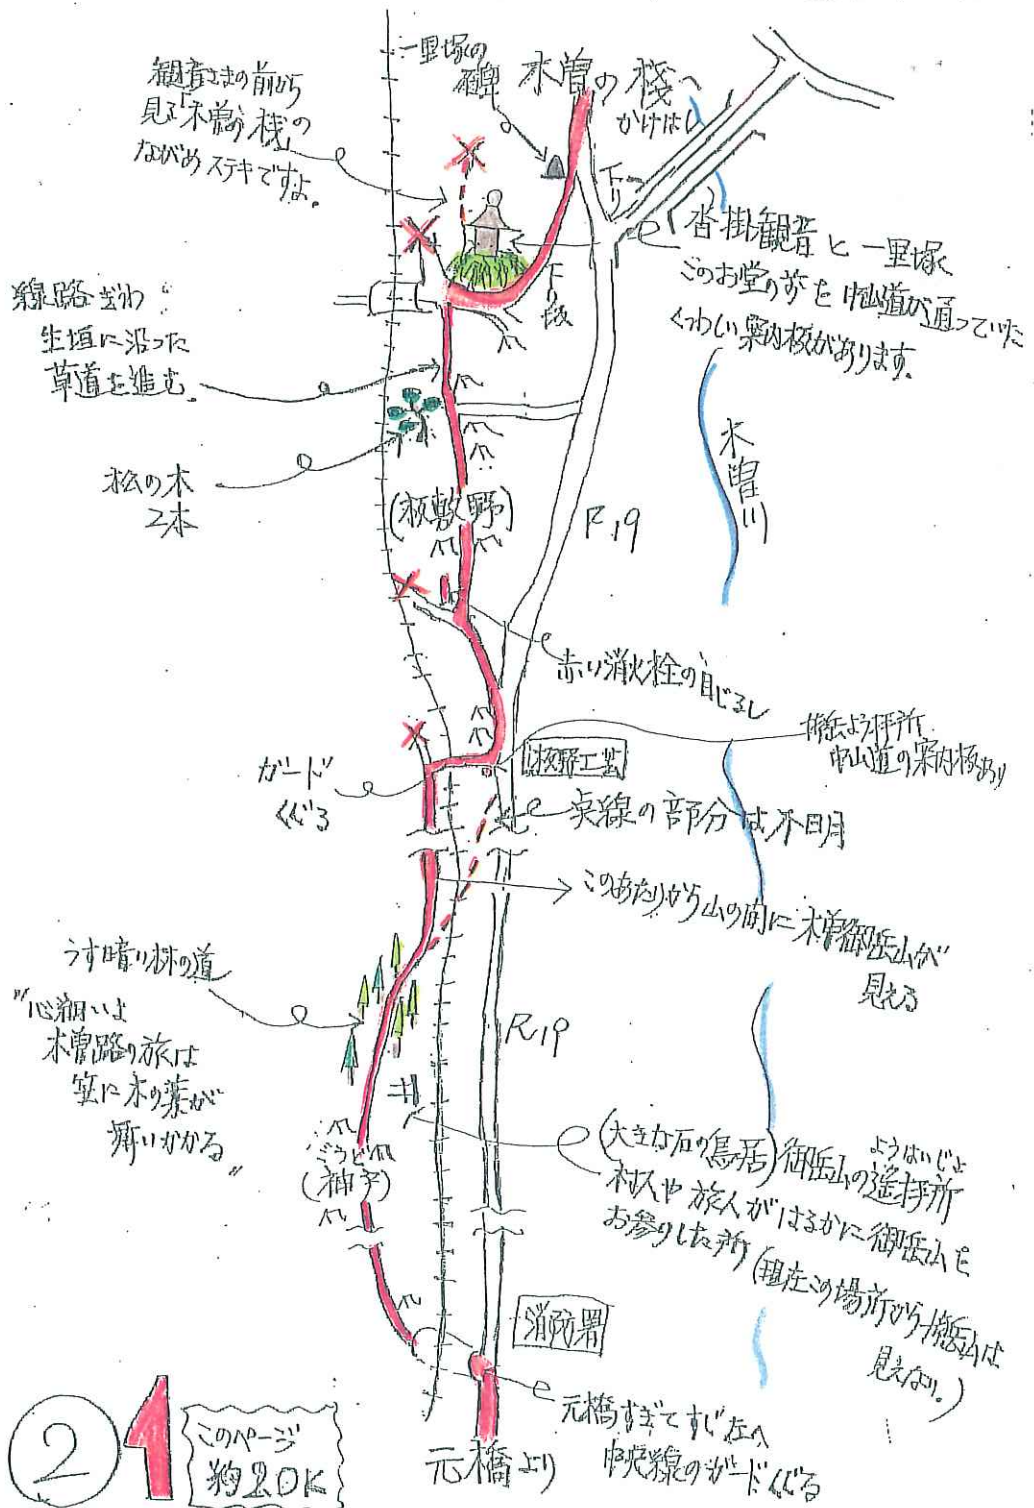 一里塚の
石碑
木曽の桟へ
かけはし
観音さまの前から
見る「木曽の桟」の
ながめステキですよ。
下り
沓掛観音と一里塚
このお堂の前を中山道が通っていた
くわしい案内板があります。
線路ぎわ
生垣に沿った
草道を進む。
下り段
松の木
2本
(板敷野)
R19
木曽川
赤い消火栓の目じるし
御岳よう拝所
中山道の案内板あり
ガード
くぐる
板野工芸
点線の部分は不明
このあたりから山の間に木曽御岳山が
見える
うす暗い林の道
"心細いよ
木曽路の旅は
笠に木の葉が
舞いかかる"
R19
ごうど
(神戸)
(大きな石の鳥居)御岳山の遙拝所
ようはいじょ
村人や旅人がはるかに御岳山を
お参りした所(現在この場所から御岳山は
見えない。)
消防署
元橋すぎてすぐ左へ
中央線のガードくぐる
元橋より
② 1
このページ
約2.0K